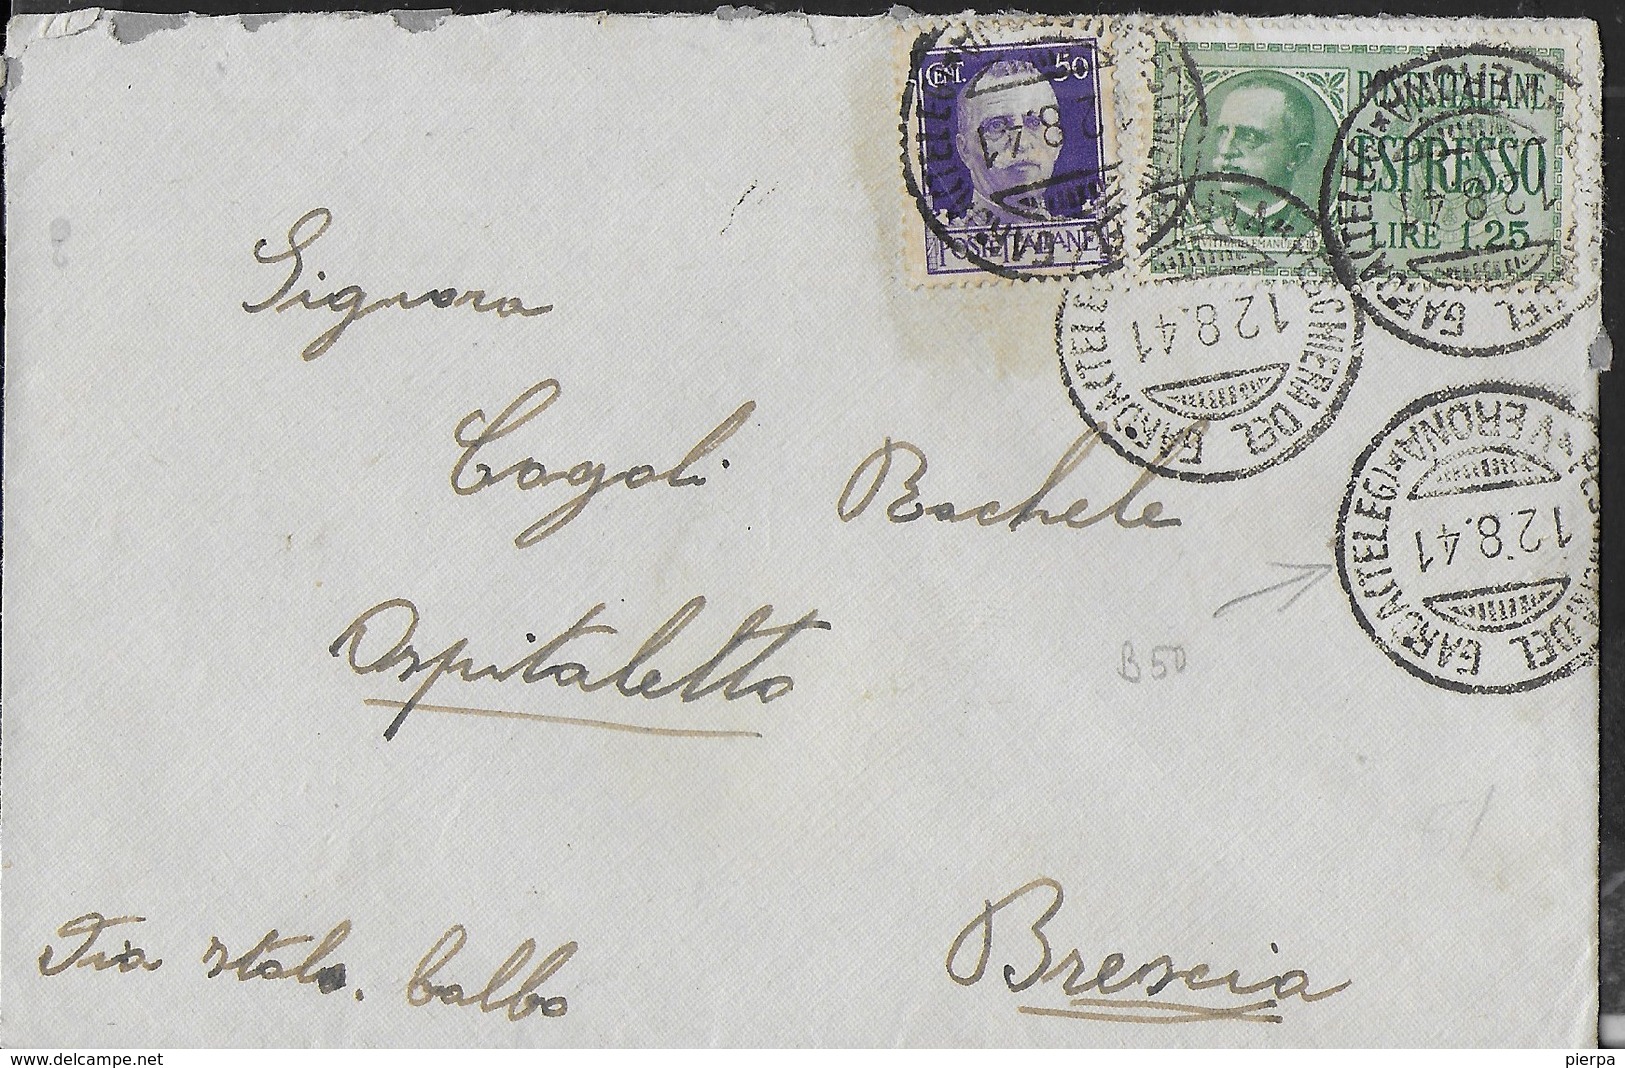 CENT. 50
POSTE ITALIANE
POSTE ITALIANE
ESPRESSO
LIRE 1.25
28.41
128.41
128.41
DEL GARDA (TELEG.) * VERONA *
128.41
Signora
Cogoli Rachele
Ospitaletto
B50
Via Italo. Balbo
Brescia
www.delcampe.net
pierpa